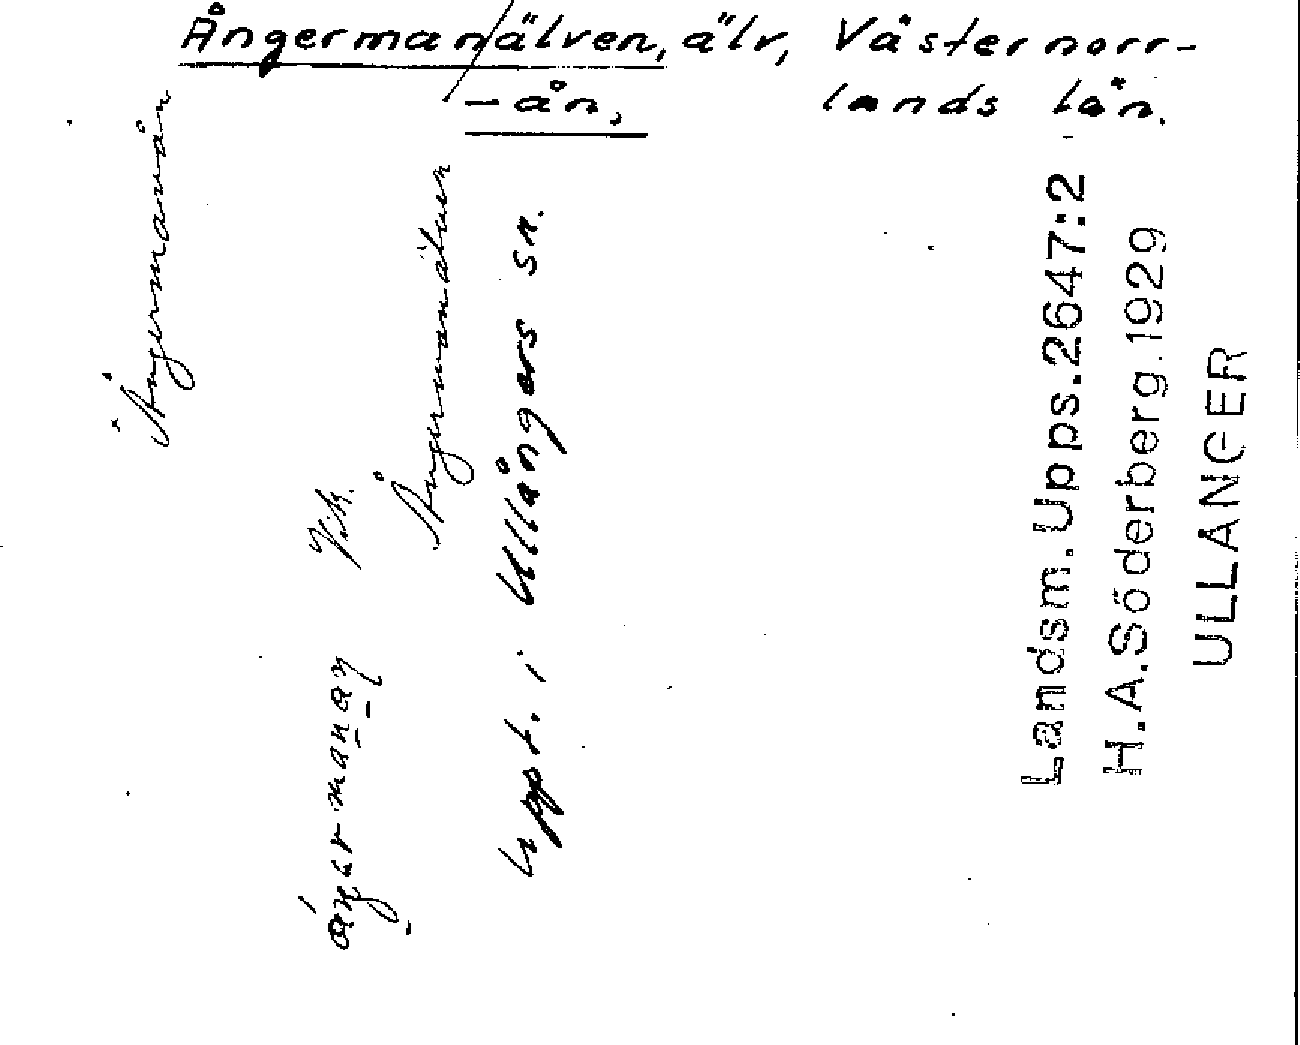 Ångerman/älven, älv, Västernorr-
-ån, lands län.
Ångermanån
Vik.
Ångermanälven
uppt. i Ullångers sn.
Landsm. Upps. 2647:2
H.A.Söderberg. 1929
ULLÅNGER